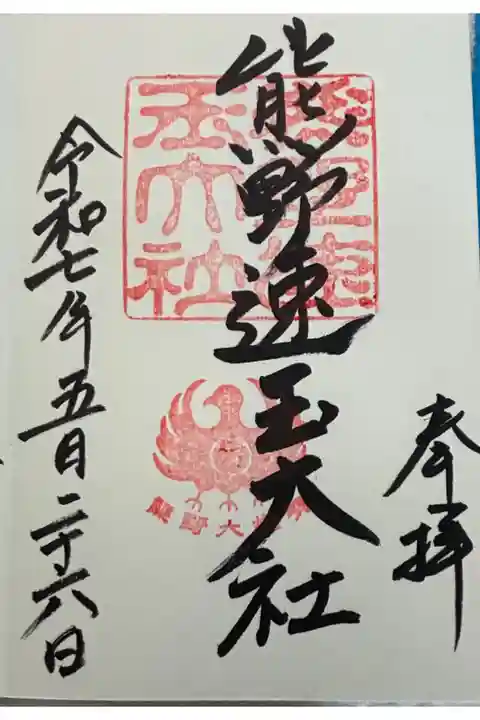 奉拝
熊野速玉大社
熊野速
玉大社
熊野大
令和七年五月二十六日